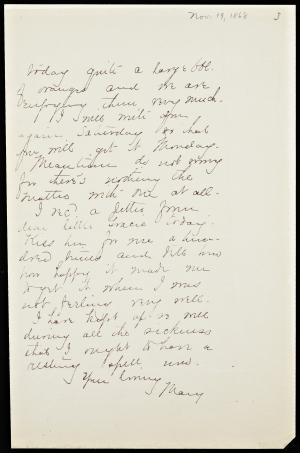 Nov. 19, 1868 3
today quite a large bbl.
of oranges and we are
enjoying them very much.
I will write you
again Saturday so that
you will get it Monday.
Meantime do not worry
for there's nothing the
matter with me at all.
I rec'd a letter from
dear little Gracie today.
Kiss her for me a hun-
dred times and tell her
how happy it made me
to get it when I was
not feeling very well.
I have kept up so well
during all the sickness
that I ought to have a
resting spell now.
Your loving
Mary